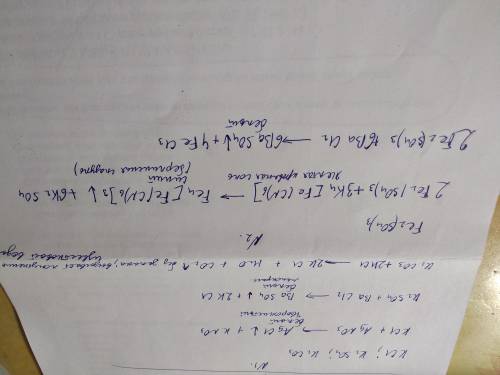 N1.
KCl; K2SO4; K2CO3
KCl + AgNO3 → AgCl↓ + KNO3
белый
творожистый
K2SO4 + BaCl2 → BaSO4↓ + 2KCl
белый
K2CO3 + 2HCl → 2KCl + H2O + CO2↑ без запаха, вызывает помутнение
известковой воды
N2.
Fe2(SO4)3
2Fe2(SO4)3 + 3K4[Fe(CN)6] → Fe4[Fe(CN)6]3↓ + 6K2SO4
желтая кровяная соль синий
(берлинская лазурь)
2Fe2(SO4)3 + 6BaCl2 → 6BaSO4↓ + 4FeCl3
белый